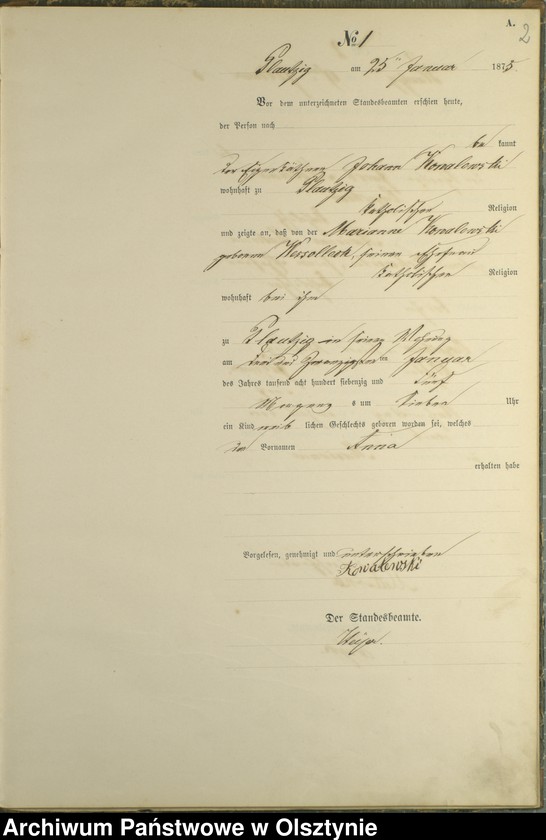 A.
2
No 1
Plautzig am 25 Januar 1875.
Vor dem unterzeichneten Standesbeamten erschien heute,
der Person nach
be kannt
der Eigenkäthner Johann Kowalewski
wohnhaft zu Plautzig
katholischer Religion
und zeigte an, daß von der Marianne Kowalewski
geborene Wessolleck, seiner Ehefrau
katholischer Religion
wohnhaft bei ihm
zu Plautzig in seiner Wohnung
am drei und zwanzigsten ten Januar
des Jahres tausend acht hundert siebenzig und fünf
Morgens um sieben Uhr
ein Kind weib lichen Geschlechts geboren worden sei, welches
den Vornamen Anna
erhalten habe
Vorgelesen, genehmigt und unterschrieben
Kowalewski
Der Standesbeamte.
Archiwum Państwowe w Olsztynie